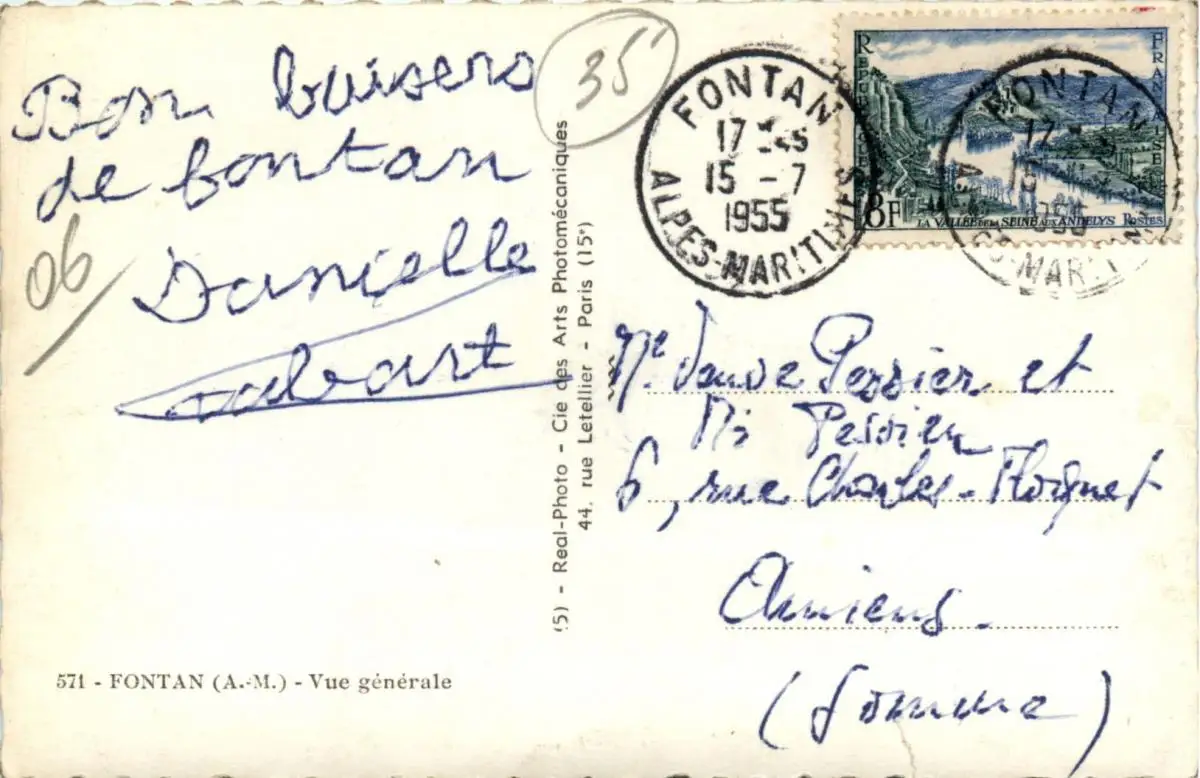 Bon baisers
de fontan
Danielle
35
06
FONTAN
17 45
15 - 7
1955
ALPES-MARITIMES
REPUBLIQUE FRANÇAISE
8F
LA VALLÉE DE LA SEINE AUX ANDELYS POSTES
FONTAN
15
1955
(5) - Real-Photo - Cie des Arts Photomécaniques
44, rue Letellier - Paris (15e)
Me Veuve Pessier et
Mr Pessier
6, rue Charles-Floquet
Amiens.
(Somme)
571 - FONTAN (A.-M.) - Vue générale